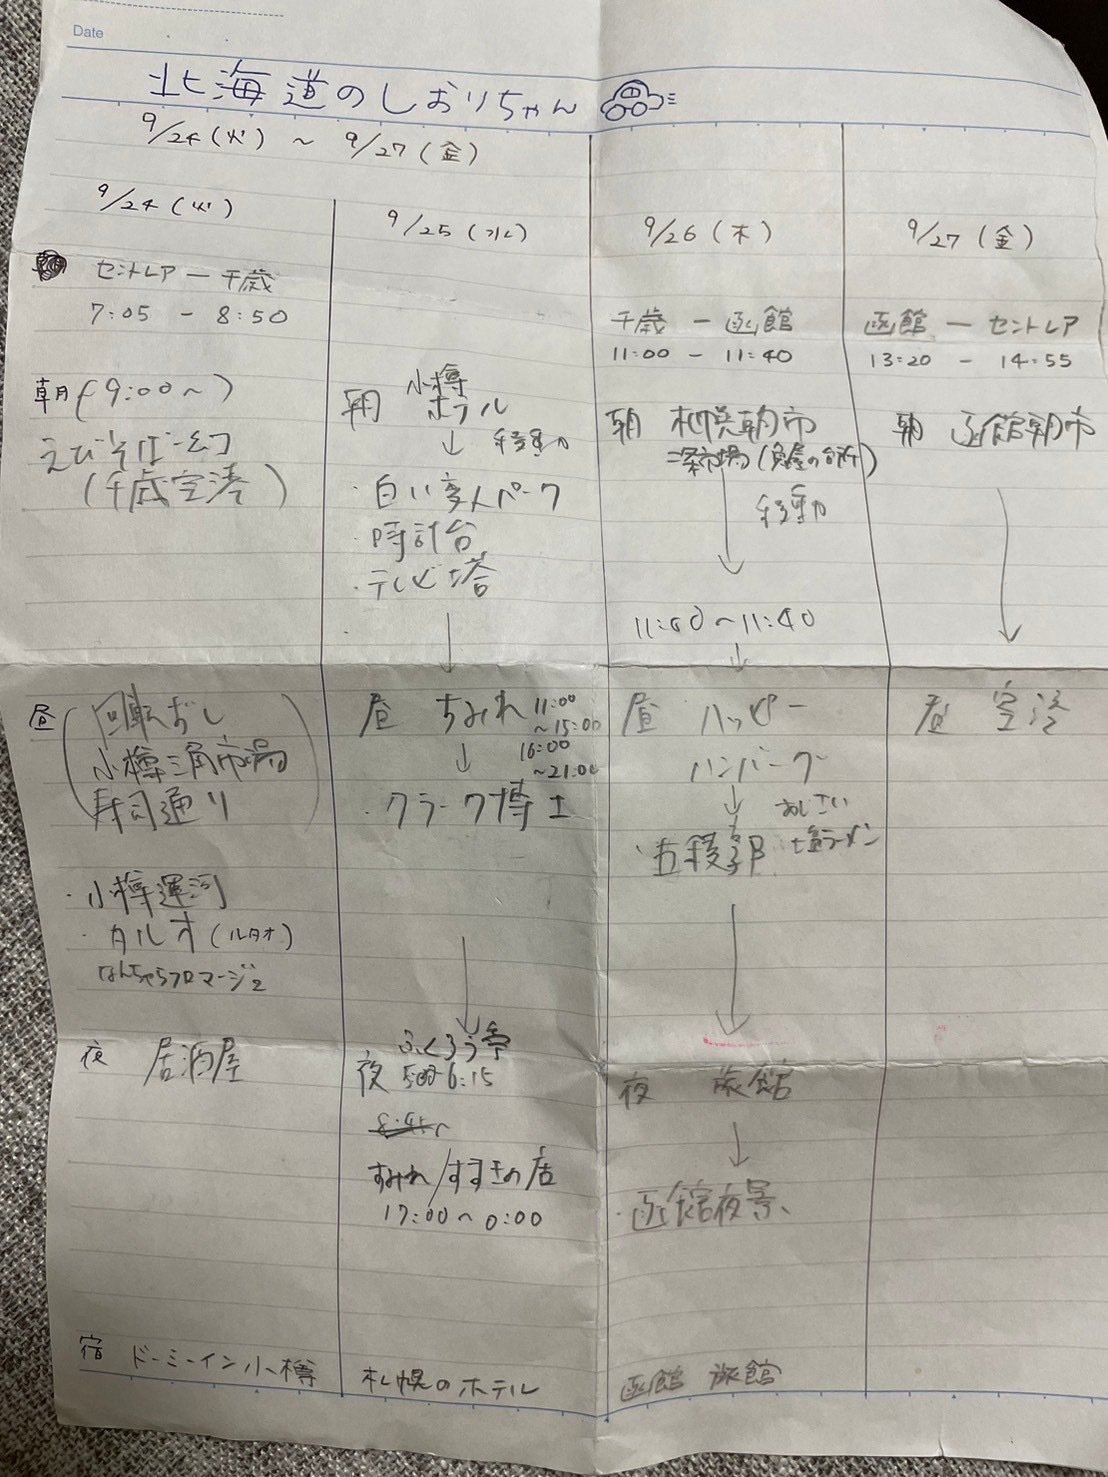 Date
北海道のしおりちゃん
9/24(火) ~ 9/27(金)
9/24(火)
セントレア ー 千歳
7:05 - 8:50
朝(9:00~)
えびそば一幻
(千歳空港)
昼
回転ずし
小樽三角市場
寿司通り
・小樽運河
・タルオ(ルタオ)
なんちゃらフロマージュ
夜 居酒屋
宿 ドーミーイン小樽
9/25(水)
朝 小樽
ホテル
↓ 移動
・白い変人パーク
・時計台
・テレビ塔
↓
昼 すみれ 11:00
~15:00
↓ 16:00
~21:00
・クラーク博士
↓
ふくろう亭
夜 5:00-6:15
すみれ/すすきの店
17:00~0:00
札幌のホテル
9/26(木)
千歳 ー 函館
11:00 - 11:40
朝 札幌朝市
二条市場(魚屋の台所)
↓ 移動
11:00~11:40
↓
昼 ハッピー
ハンバーガー
↓ あじさい
・五稜郭 塩ラーメン
↓
夜 旅館
↓
・函館夜景、
函館 旅館
9/27(金)
函館 ー セントレア
13:20 - 14:55
朝 函館朝市
↓
昼 空港